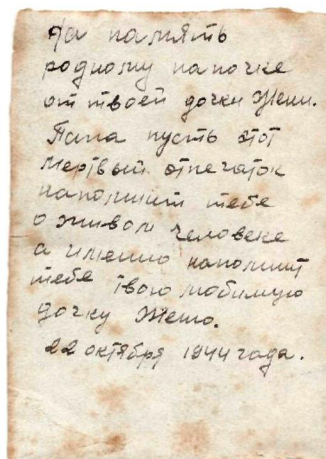 На память
родному папочке
от твоей дочки Жени.
Папа пусть этот
мертвый отпечаток
напомнит тебе
о живом человеке
а именно напомнит
тебе твою любимую
дочку Женю.
22 октября 1944 года.